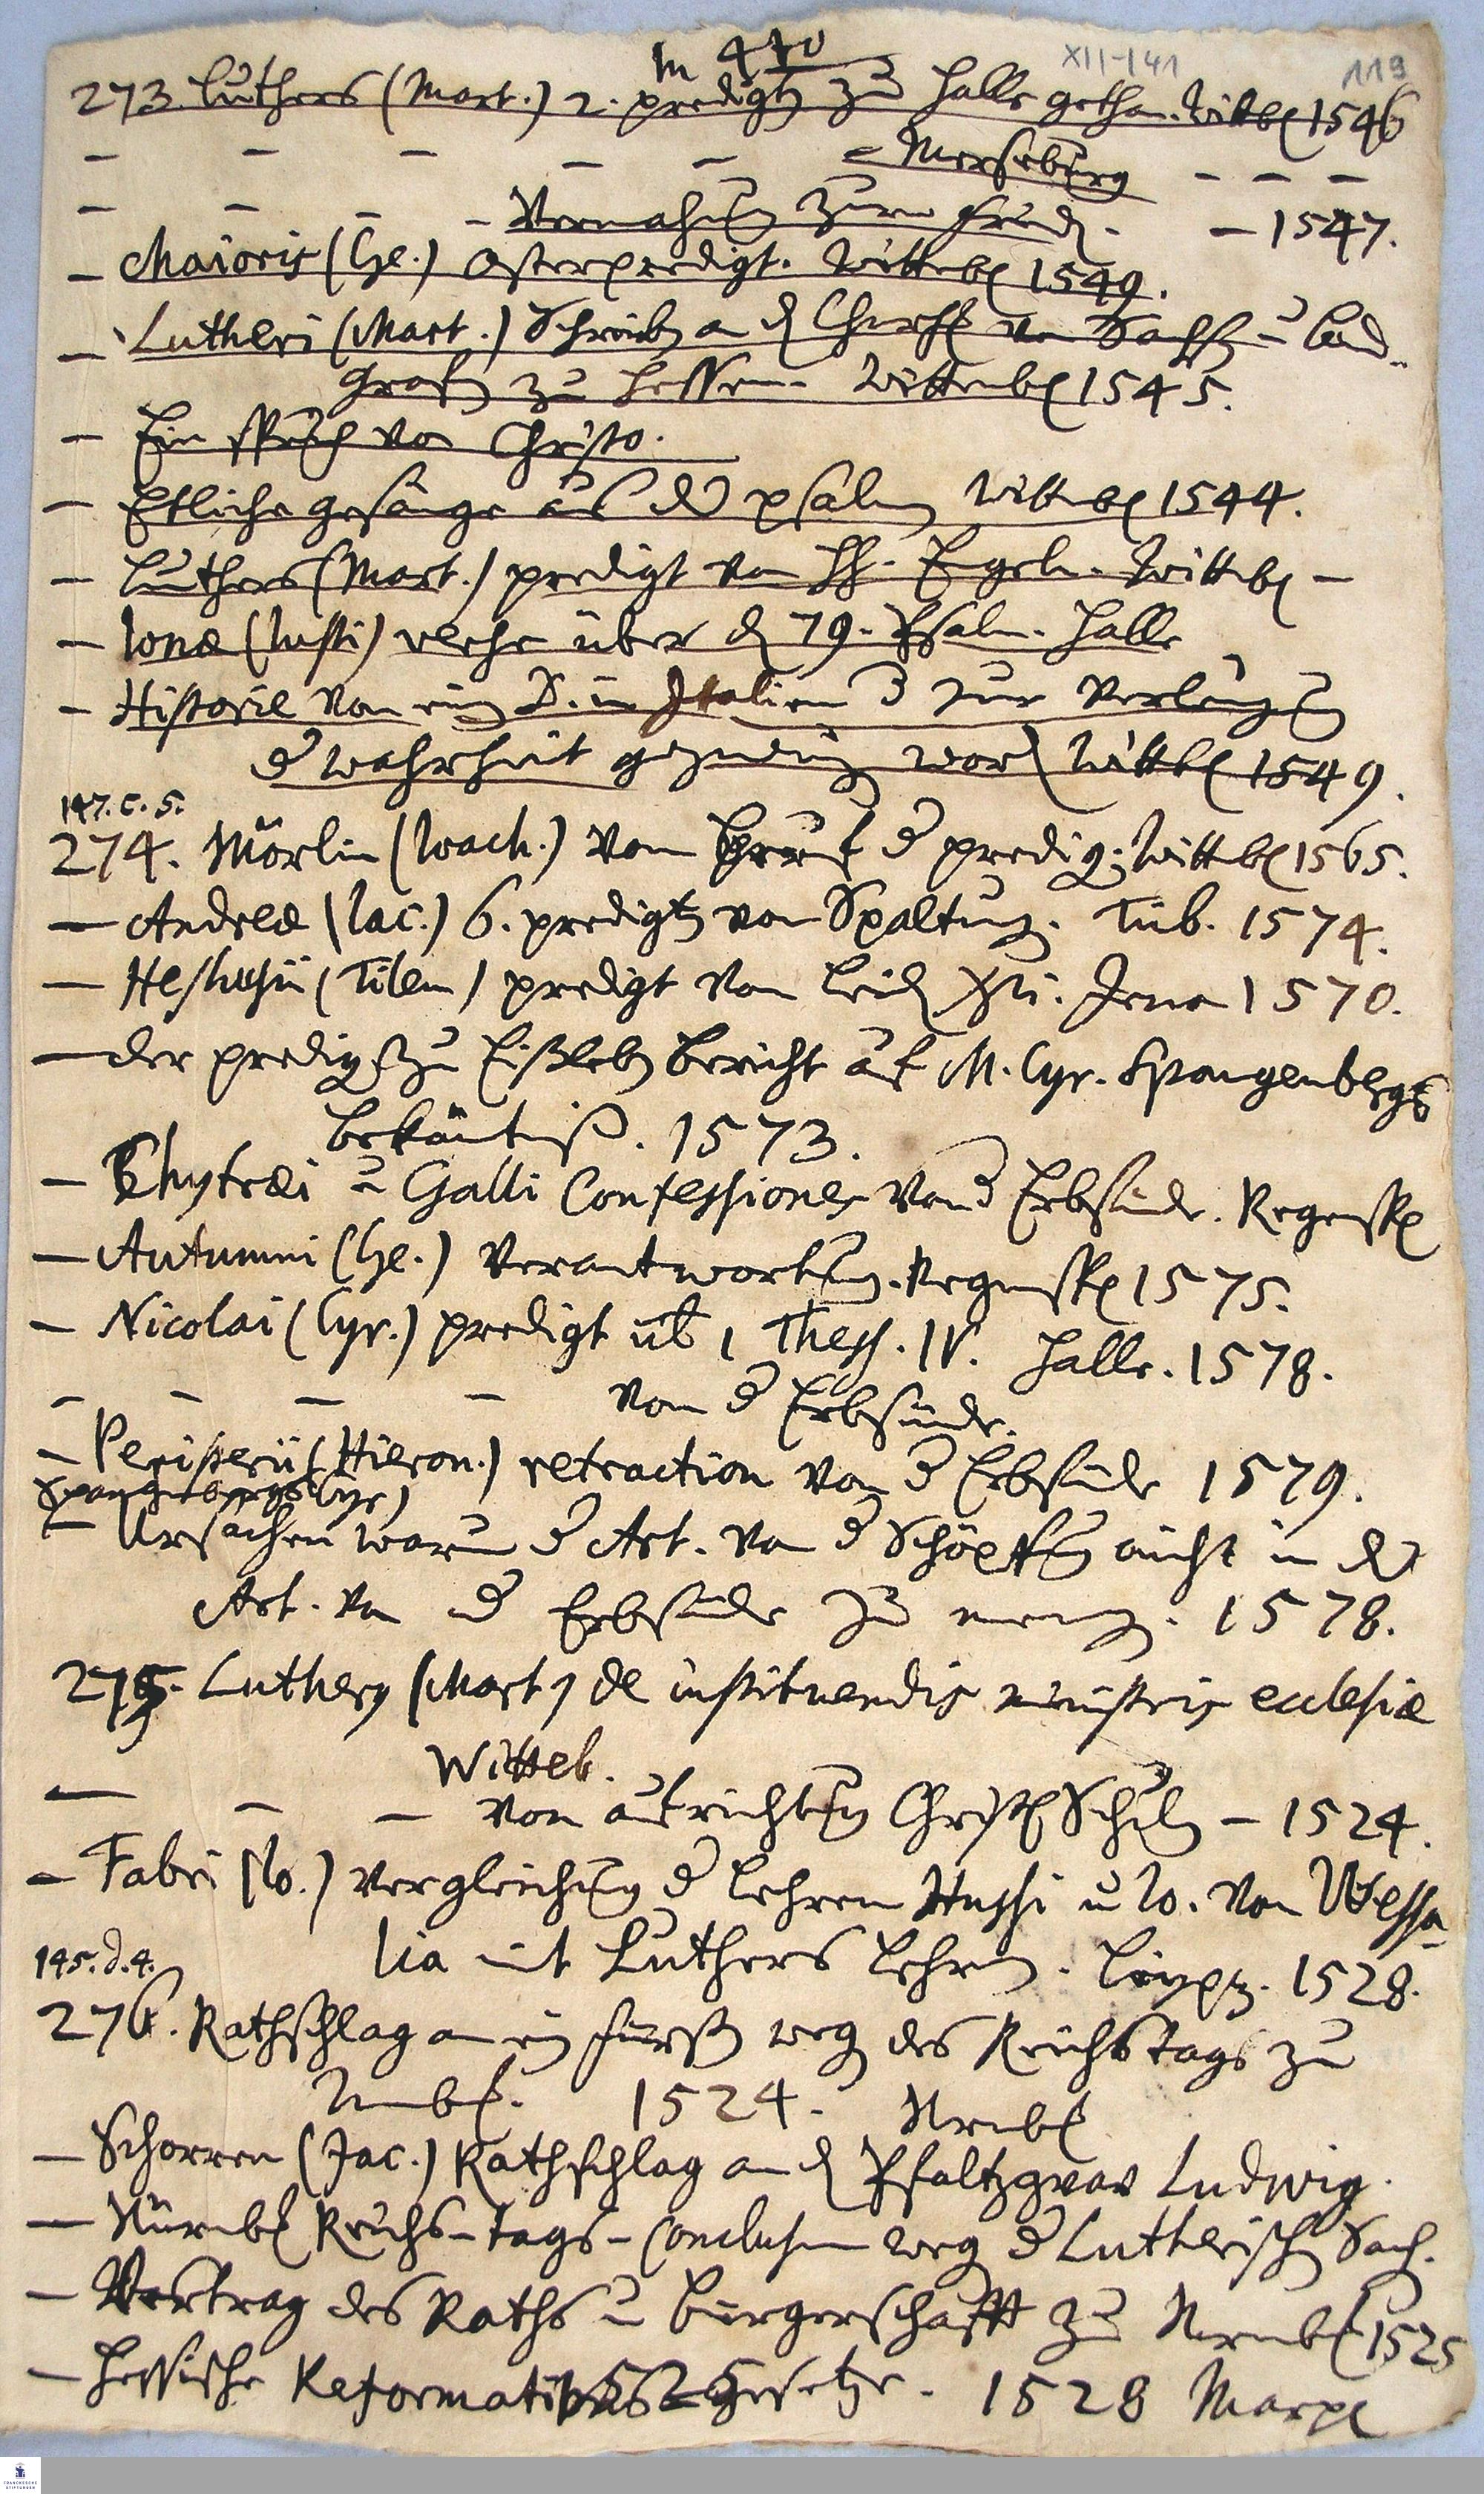 m 470
XII-141 119
273. Luthers (Mart.) 2. predigt zu Halle gethan. Wittbg 1546
– – – – – – Merseburg – – –
– – – – Vermahnung zum – 1547.
– Maioris (Ge.) Osterpredigt. Wittebg 1549.
– Lutheri (Mart.) Schreiben an d Churf von Sachsen u Land-
Grafen zu Hessen. Wittenbg 1545.
– Ein spruch von Christo.
– Etliche gesänge aus dem psalmen Wittenbg 1544.
– Luthers (Mart.) predigt von HH. Engeln. Wittbg –
– Ionæ (Iusti) über d 79. Psalm. Halle
– Historie von D. in Italien zur Verleugnung
d wahrheit gezwungen worden Wittbg 1549.
147.c.5.
274. Mörlin (Ioach.) vom Beruf d predig; Wittbg 1565.
– Andreæ (Iac.) 6. predigten von Spaltung. Tüb. 1574.
– Heshusii (Tilem) predigt vom Leiden Xsti. Jena 1570.
– der predigr zu Eißleben Bericht auf M. Cyr. Spangenbergs
bekäntniß. 1573.
– Chytræi u Galli Confessiones von d Erbsünde. Regenspg
– Autumni (Ge.) Verantwortung. Regenspg 1575.
– Nicolai (Cyr.) predigt üb 1 Thess. IV. Halle. 1578.
– – – – von d Erbsünde.
– Peristerii (Hieron.) retraction von d Erbsünde 1579.
Spangenbergs (Cyr)
– Ursachen warum d Art. von d Schöpffung nicht in den
Art. von d Erbsünde zu mengen. 1578.
275. Luthers (Mart) de instituendis ministris ecclesiæ
Witteb.
– – – von aufrichtung Christl Schulen – 1524.
– Fabri (Io.) Vergleichung d Lehren Hussi u Io. von Wessa-
lia mit Luthers Lehren. Leipz. 1528.
145.d.4.
276. Rathschlag an ein fürsten weg des Reichstags zu
Nurnbg. 1524. Nrnbg
– Schorren (Jac.) Rathschlag an d Pfaltzgrav Ludwig.
– Nürnbg Reichs-tags-Conclusum weg d Lutherisch Sach.
– Vertrag des Raths u Bürgerschafft zu Nrnbg 1525
– Hessische Reformations-gesetze. 1528 Marpg
FRANCKESCHE
STIFTUNGEN